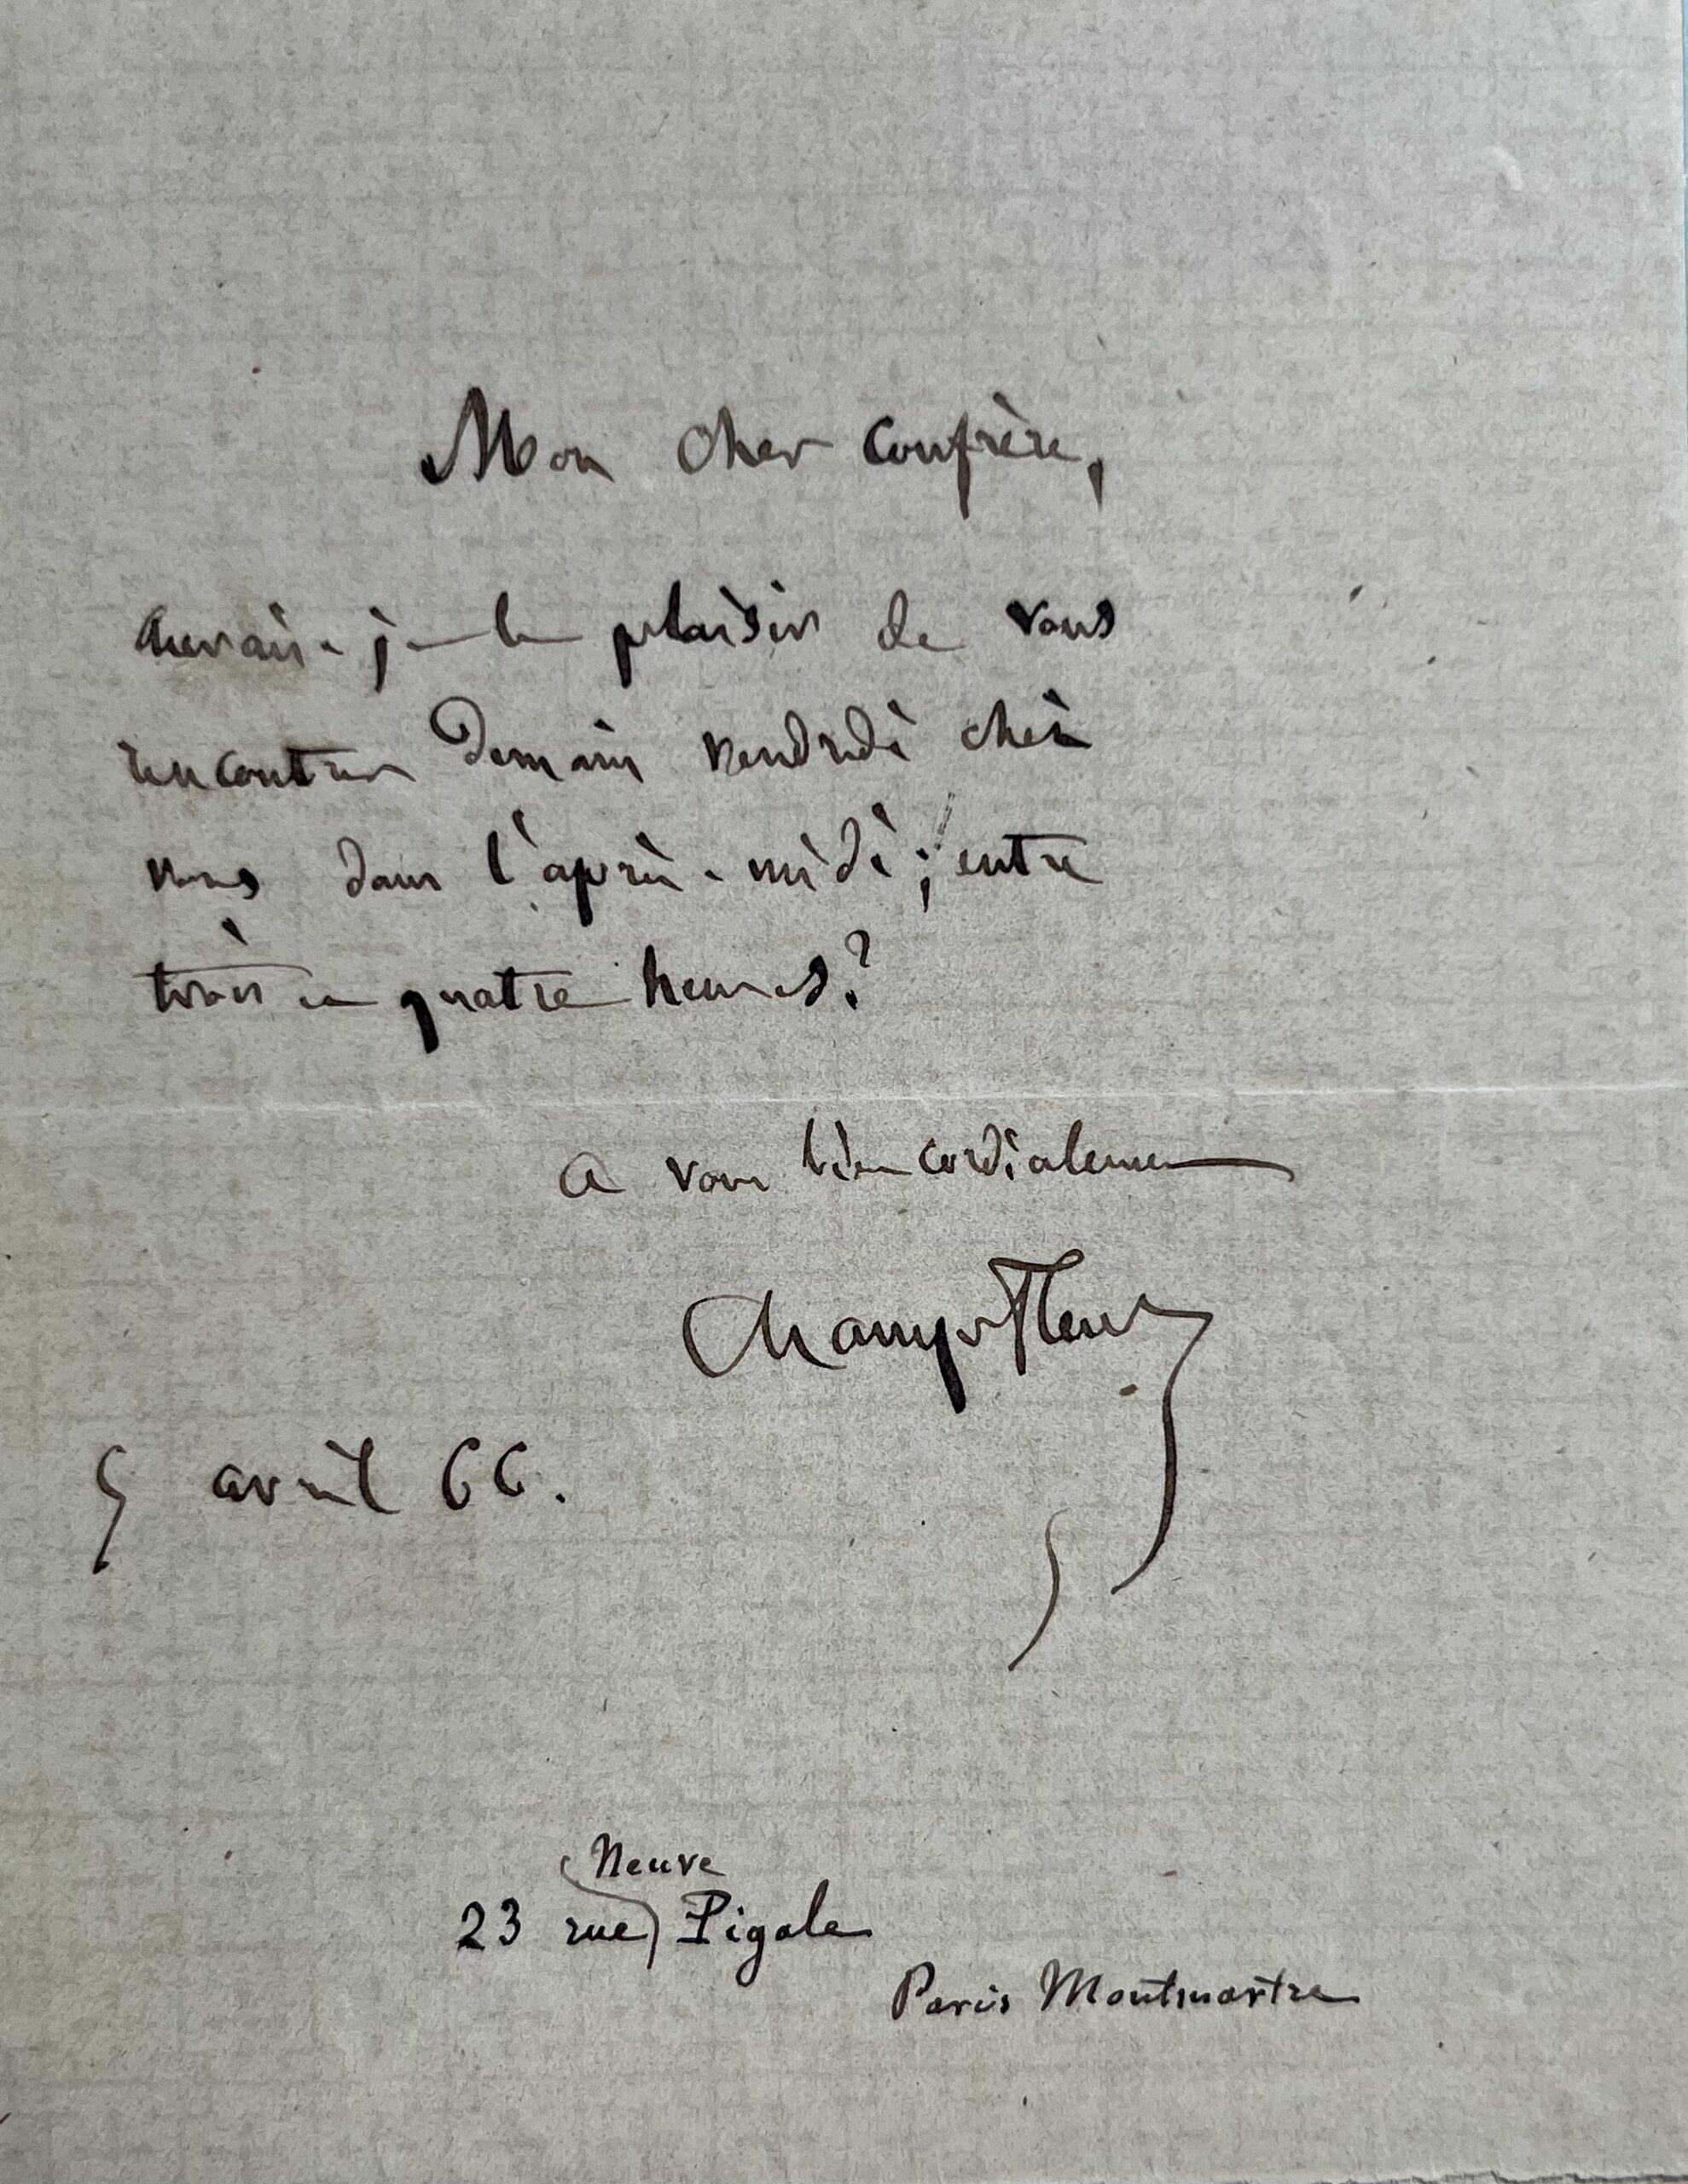 Mon cher confrère,
aurais-je le plaisir de vous
rencontrer demain vendredi chez
vous dans l'après-midi; entre
trois et quatre heures?
a vous bien cordialement
Champfleury
5 avril 66.
Neuve
23 rue Pigale
Paris Montmartre